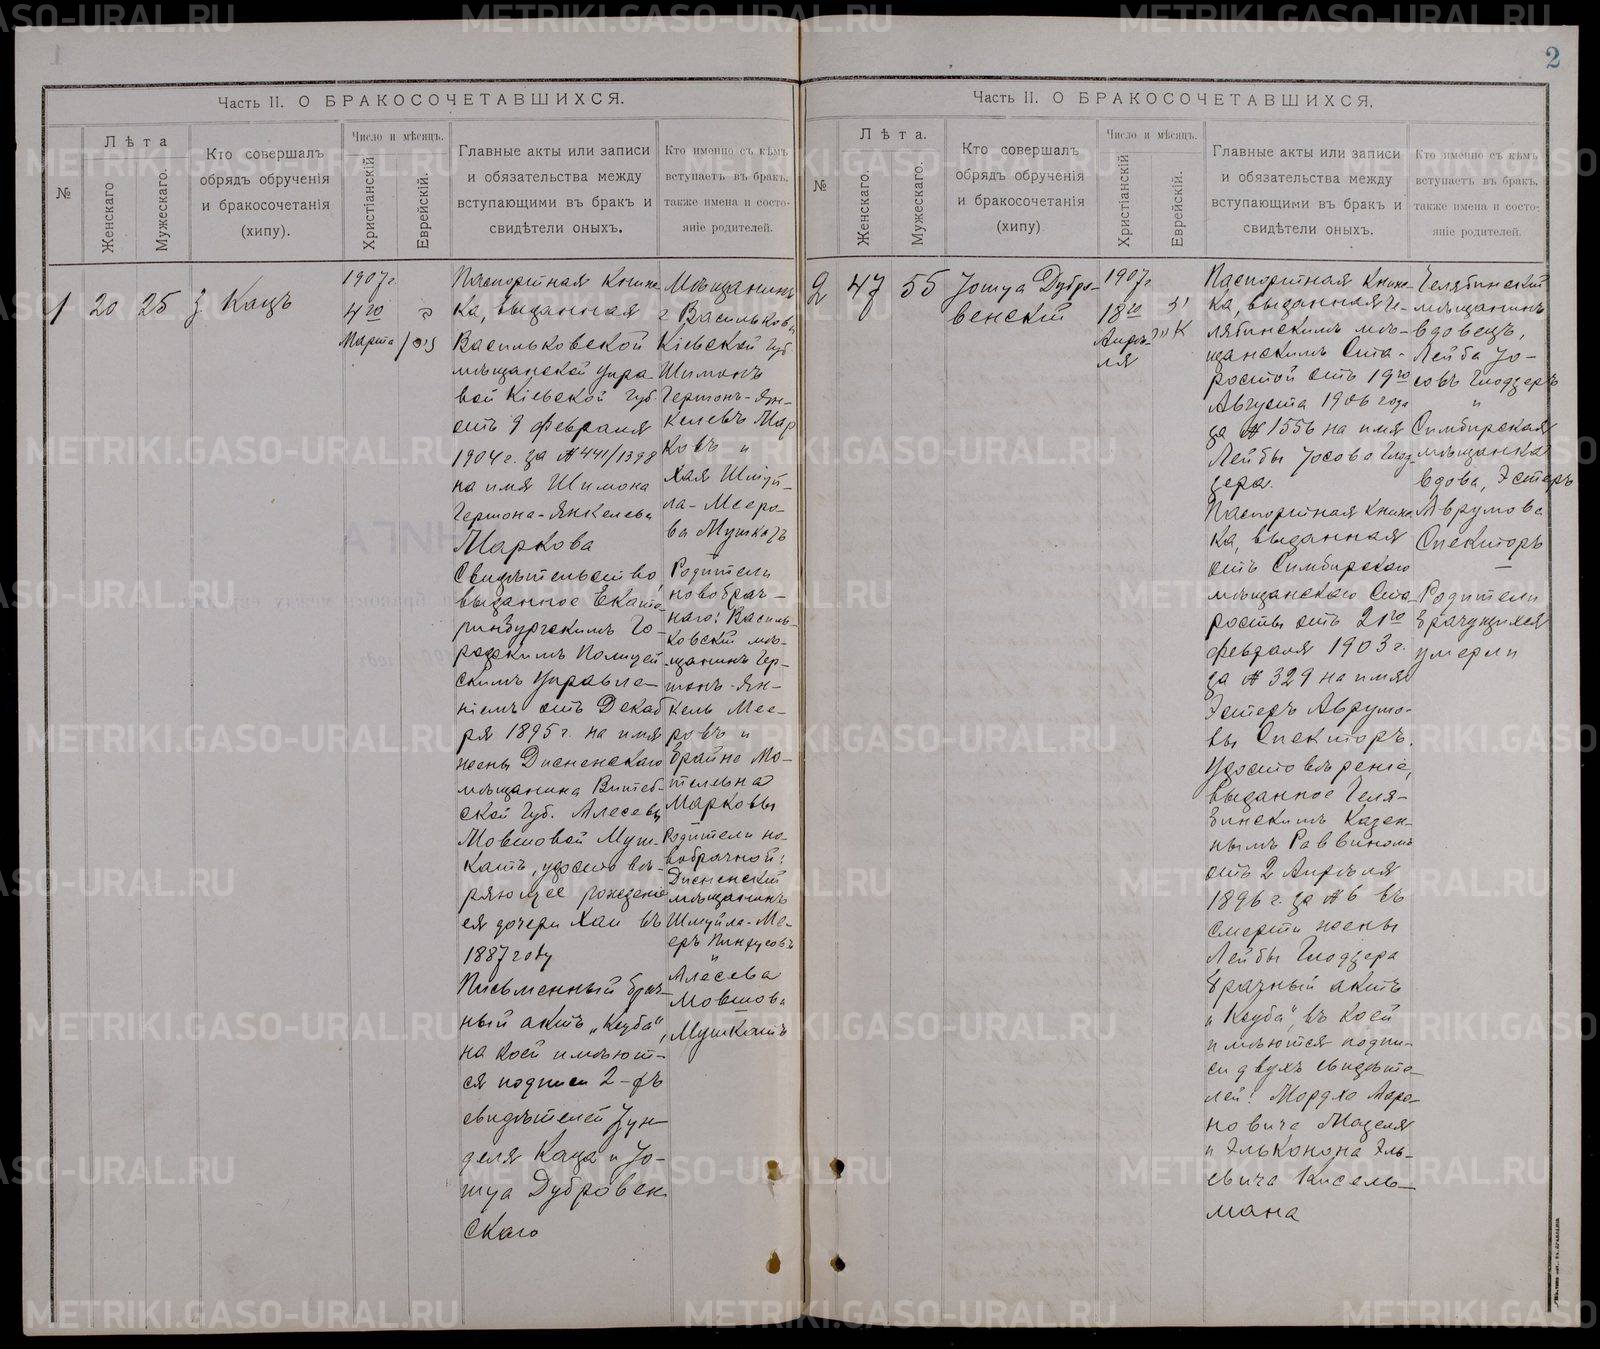 1
2
Часть II. О БРАКОСОЧЕТАВШИХСЯ.
№
Лѣта
Женскаго
Мужескаго.
Кто совершалъ
обрядъ обрученія
и бракосочетанія
(хипу).
Число и мѣсяцъ.
Христіанскій
Еврейскій.
Главные акты или записи
и обязательства между
вступающими въ бракъ и
свидѣтели оныхъ.
Кто именно съ кѣмъ
вступаетъ въ бракъ,
также имена и состо-
яніе родителей.
1
20
25
З. Кацъ
1907 г.
4го
Марта
Паспортная книж-
ка, выданная
Васильковской
мѣщанской упра
вой Кіевской губ.
отъ 9 февраля
1904 г. за № 441/1398
на имя Шимона
Гершона-Янкелева
Маркова
Свидѣтельство,
выданное Екате-
ринбургскимъ Го-
родскимъ Полицей
скимъ Управле-
ніемъ отъ Декаб
ря 1895 г. на имя
жены Дисненскаго
мѣщанина Витеб-
ской губ. Алесевы
Мовшовой Муш-
катъ, удостовѣ-
ряющее рожденіе
ея дочери Хаи въ
1887 году
Письменный брач-
ный актъ „Ксуба",
на коей имѣют-
ся подписи 2-хъ
свидѣтелей Зун-
деля Каца и Іо-
шуа Дубровен
скаго
Мѣщанинъ
г. Василькова
Кіевской губ
Шимонъ
Гершонъ-Ян-
келевъ Мар
ковъ и
Хая Шмуй-
ла-Мееро-
ва Мушкатъ
Родители
новобрач-
наго: Василь-
ковскій мѣ-
щанинъ Гер-
шонъ-Ян-
кель Мее-
ровъ и
Брайна Мо-
тельева
Марковы
Родители но-
вобрачной:
Дисненскій
мѣщанинъ
Шмуйла-Ме-
еръ Пинхусовъ
и
Алесева
Мовшова
Мушкатъ
Часть II. О БРАКОСОЧЕТАВШИХСЯ.
№
Лѣта.
Женскаго.
Мужескаго.
Кто совершалъ
обрядъ обрученія
и бракосочетанія
(хипу)
Число и мѣсяцъ.
Христіанскій
Еврейскій.
Главные акты или записи
и обязательства между
вступающими въ бракъ и
свидѣтели оныхъ.
Кто именно съ кѣмъ
вступаетъ въ бракъ,
также имена и состо-
яніе родителей.
2
47
55
Іошуа Дубро-
венскій
1907 г
18го
Апрѣ-
ля
Паспортная книж
ка, выданная Че-
лябинскимъ мѣ-
щанскимъ Ста-
ростой отъ 19го
Августа 1906 года
за № 1556 на имя
Лейбы Іосова Глод-
зера.
Паспортная книж
ка, выданная
отъ Симбирскаго
мѣщанскаго Ста
росты отъ 21го
февраля 1903 г.
за № 329 на имя
Эстеръ Аврумо-
вы Спекторъ.
Удостовѣреніе,
выданное Челя-
бинскимъ Казен-
нымъ Раввиномъ
отъ 2 Апрѣля
1896 г. за № 6 въ
смерти жены
Лейбы Глодзера
Брачный актъ
„Ксуба", въ коей
имѣются подпи-
си двухъ свидѣте-
лей: Мордхо Аро-
новича Мазеля
и Эльконона Эль-
евича Кисель-
мана
Челябинскій
мѣщанинъ
вдовецъ,
Лейба Іо-
совъ Глодзеръ
и
Симбирская
мѣщанка
вдова, Эстеръ
Аврумова
Спекторъ
Родители
брачущихся
умерли